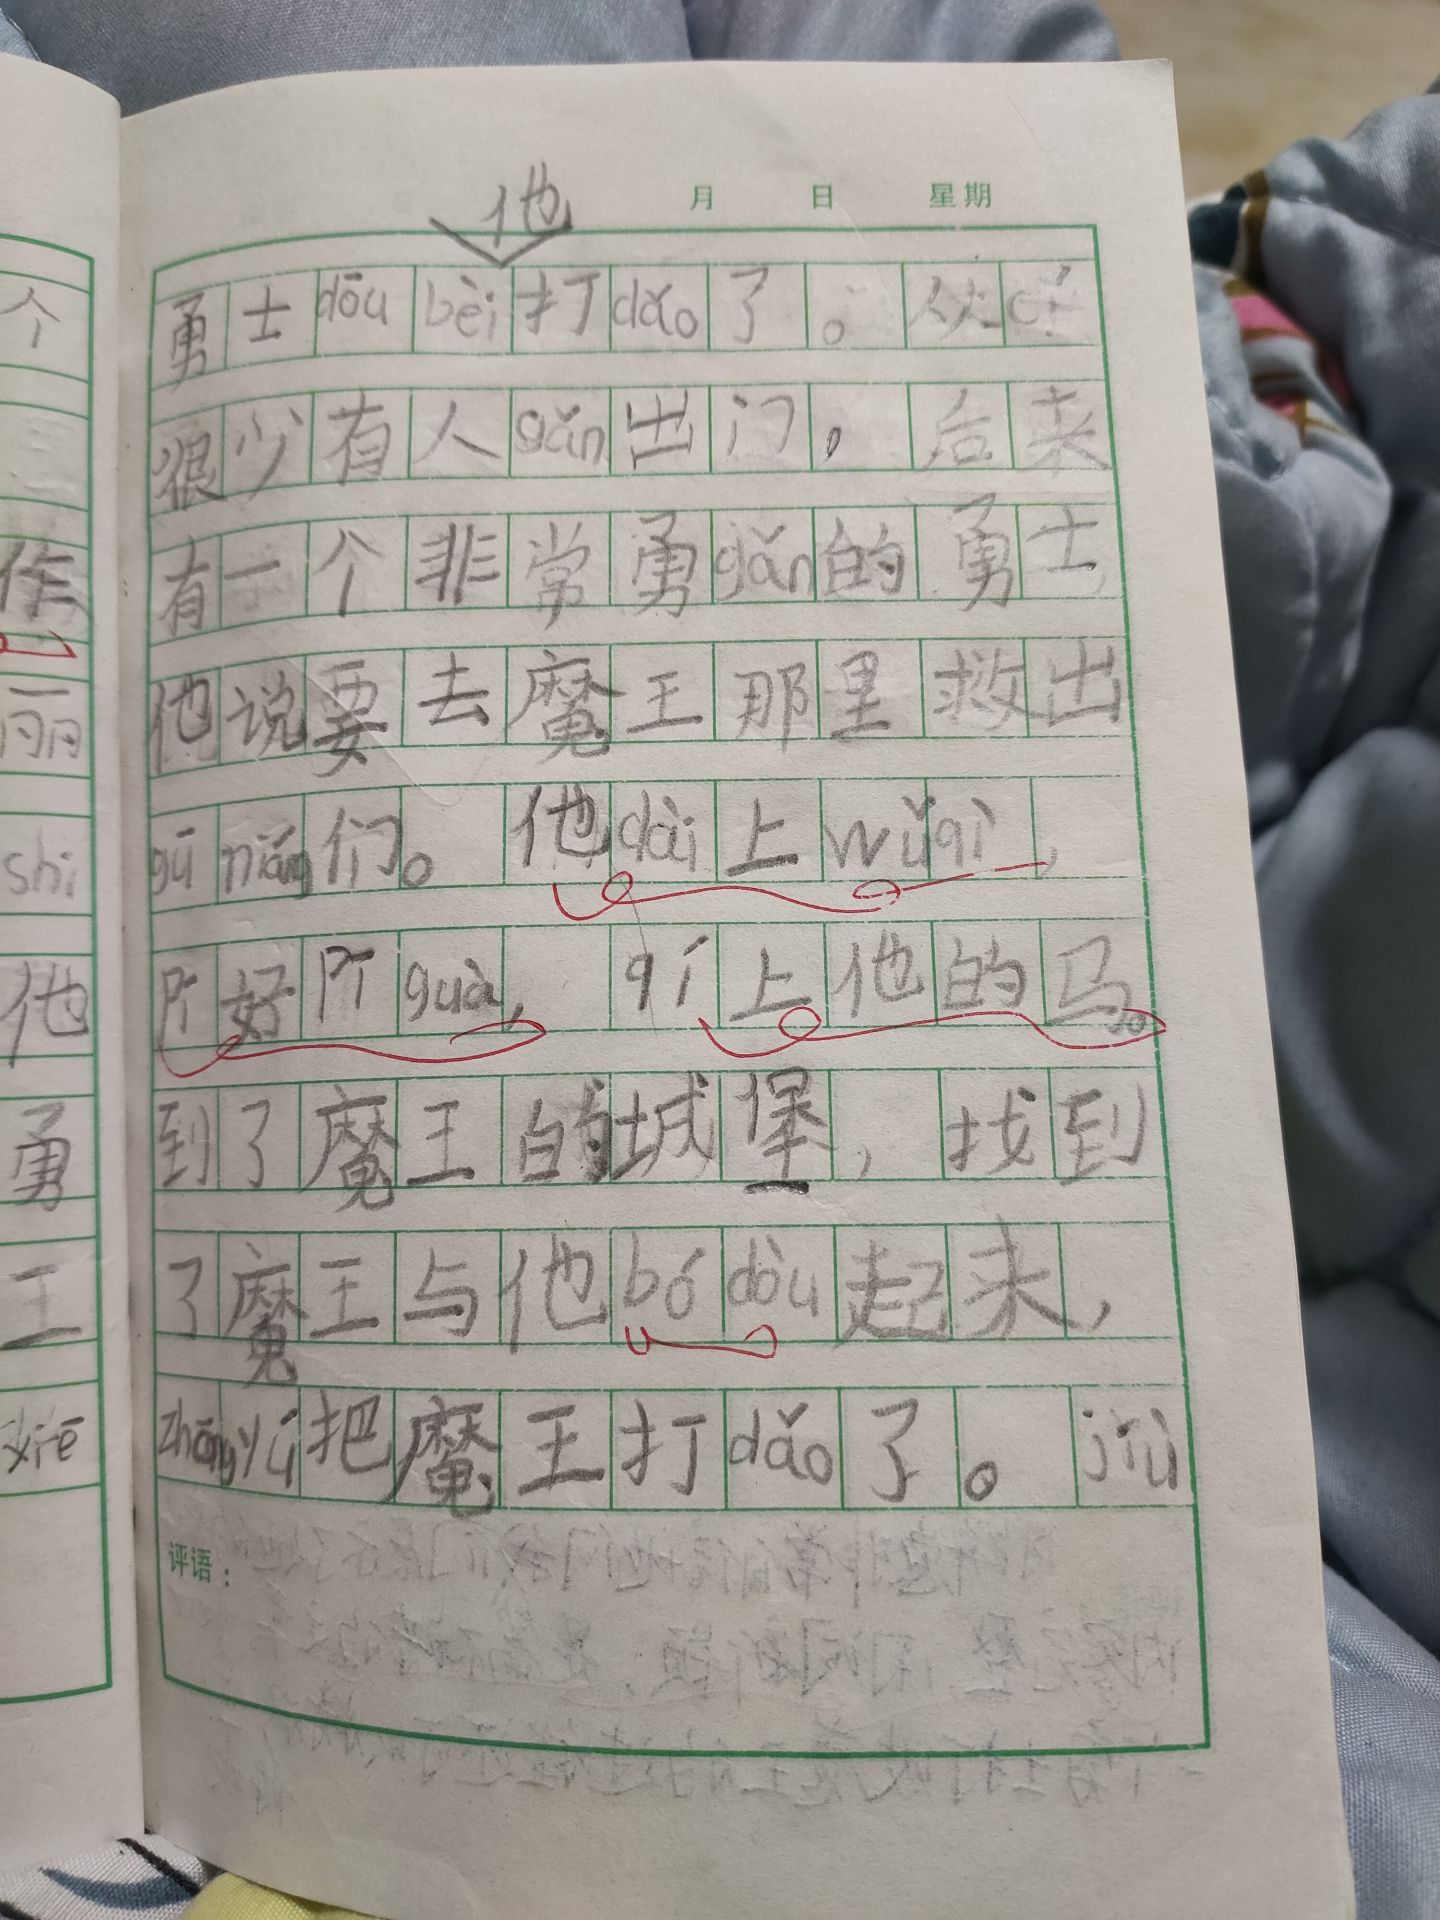 他
月 日 星期
个
作
丽
shi
他
勇
王
xiē
勇士dōu bèi打dǎo了。从cǐ
很少有人gǎn出门，后来
有一个非常勇gǎn的勇士，
他说要去魔王那里救出
gū niáng们。他dài上wǔqì，
pī好pī guà，qí上他的马。
到了魔王的城堡，找到
了魔王与他bó dòu起来，
zhōng yú把魔王打dǎo了。jiù
评语：